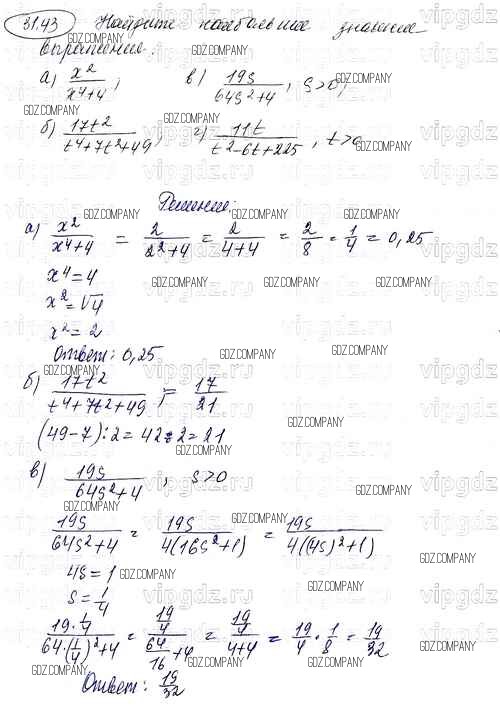 31.43 Найдите наибольшее значение
выражение:
а) x²/(x⁴+4); в) 19s/(64s²+4), s>0;
б) 17t²/(t⁴+7t²+49); г) 11t/(t²-6t+225), t>0
Решение:
а) x²/(x⁴+4) = 2/(2²+4) = 2/(4+4) = 2/8 = 1/4 = 0,25
x⁴=4
x²=√4
x²=2
Ответ: 0,25
б) 17t²/(t⁴+7t²+49) = 17/21
(49-7):2=42:2=21
в) 19s/(64s²+4), s>0
19s/(64s²+4) = 19s/(4(16s²+1)) = 19s/(4((4s)²+1))
4s=1
s=1/4
(19·1/4)/(64·(1/4)²+4) = (19/4)/(64/16+4) = (19/4)/(4+4) = 19/4·1/8 = 19/32
Ответ: 19/32
GDZ.COMPANY
vipgdz.ru